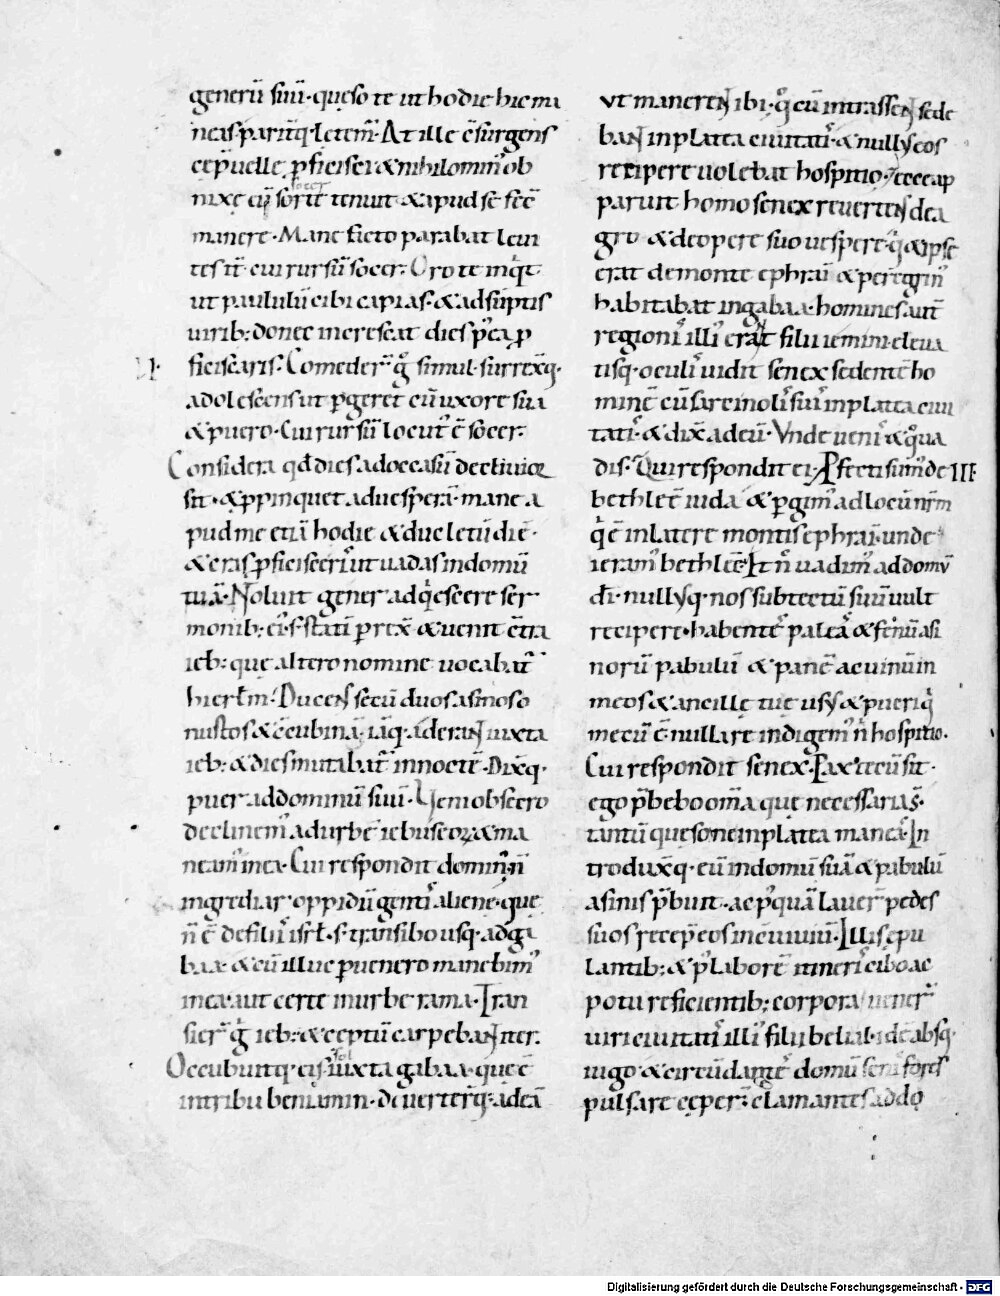 generū suū· queso te ut hodie hic ma
neas paritq; letem̄· At ille c̄surgens
cępit uelle p̄ficisci & nihilomin' ob
nixe eū socer tenuit & apud se fec̄
manere· Mane facto parabat leui
tes it̄· cui rursū socer· Oro te inq̇t
ut paululū cibi capias· & adsūptis
uirib; donec increscat dies p'ea p
II·
ficiscaris· Comeder̄ g̊ simul· surrex̄q·
adolescens ut p̄geret cū uxore sua
& puero· Cui rursū locut' ē socer·
Considera qđ dies ad occasū decliuior
sit· & p̄pinquet ad uesperā· mane a
pud me etiā hodie & duc letū diē·
& cras p̄ficisceris ut uadas in domū
tuā· Noluit gener adq̇escere ser
monib; ei'· s; statī p̄rex̄ & uenit c̄tra
ieb; que altero nomine uocabat̄
hierl̄m· Ducens secū duos asinos o
nustos & c̄cubinā· iāq· aderant iuxta
ieb; & dies mutabat̄ in nocte· Dix̄q·
puer ad dominū suū· Ueni obsecro
declinem' ad urbē iebuseoꝝ & ma
neam' in ea· Cui respondit domin'· n̄
ingrediar oppidū gentis aliene· que
n̄ ē de filiis isrl̄· s; transibo usq· ad ga
baa· & cū illuc p̄uenero manebim'
in ea· aut certe in urbe rama· Tran
sier̄ g̊ ieb; & ceptū carpebant iter·
Occubuitq; eis sol iuxta gabaa· que ē
in tribu beniamin· diuerter̄q· ad eā
Vt manerent ibi· q̊ cū intrassent sede
bant in platea ciuitatis· & nullus eos
recipere uolebat hospitio· & ecce ap
paruit homo senex reuertens de a
gro & de opere suo uespere· q̇ & ipse
erat de monte ephraī & peregrin'
habitabat in gabaa· homines aut̄
regionis illi' erant filii iemini· eleua
tisq· oculis uidit senex sedentē ho
minē cū sarcinolis suis in platea ciui
tatis· & dix̄ ad eū· Vnde uenis & quo ua
dis· Qui respondit ei· Pfecti sum' de
III
bethleē iuda & p̄gim' ad locū nr̄m
q̇ ē in latere montis ephraī· unde
ieram' bethleē· It n̄ uadim' ad domū
dī· nullusq· nos sub tectū suū uult
recipere· habentes paleā & fenū asi
norū pabulū & panē ac uinū in
meos & ancille tue usus & pueri q̇
mecū ē· nulla re indigem' n̄ hospitio·
Cui respondit senex· Pax tecū sit·
ego p̄bebo om̄a que necessaria s̄·
tantū queso ne in platea maneas· In
troduxq· eū in domū suā & pabulū
asinis p̄buit· ac p'quā lauer̄ pedes
suos recep̄ eos in c̄uiuiū· Illis epu
lantib; & p' laborē itineris cibo ac
potu reficientib; corpora uener̄
uiri ciuitatis illi' filii belial· id ē absq·
iugo & circūdantes domū senis fores
pulsare cęper̄· clamantes ad do
Digitalisierung gefördert durch die Deutsche Forschungsgemeinschaft - DFG